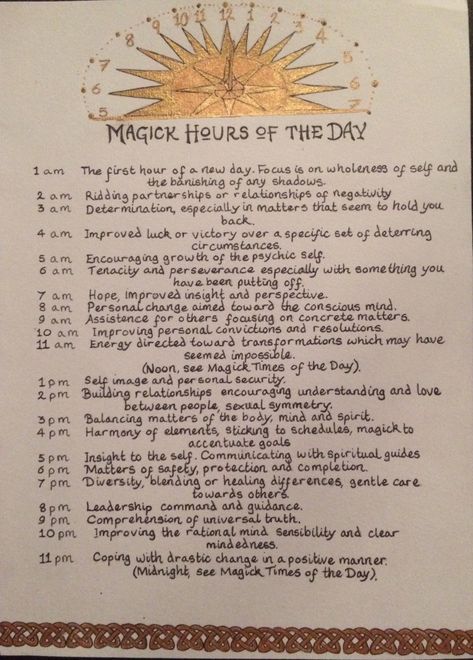 5 6 7 8 9 10 11 12 1 2 3 4 5 6 7
MAGICK HOURS OF THE DAY
1 am The first hour of a new day. Focus is on wholeness of self and
the banishing of any shadows.
2 am Ridding partnerships or relationships of negativity
3 am Determination, especially in matters that seem to hold you
back.
4 am Improved luck or victory over a specific set of deterring
circumstances.
5 am Encouraging growth of the psychic self.
6 am Tenacity and perseverance especially with something you
have been putting off.
7 am Hope, improved insight and perspective.
8 am Personal change aimed toward the conscious mind.
9 am Assistance for others focusing on concrete matters.
10 am Improving personal convictions and resolutions.
11 am Energy directed toward transformations which may have
seemed impossible.
(Noon, see Magick Times of the Day).
1 pm Self image and personal security.
2 pm Building relationships encouraging understanding and love
between people, sexual symmetry.
3 pm Balancing matters of the body, mind and spirit.
4 pm Harmony of elements, sticking to schedules, magick to
accentuate goals
5 pm Insight to the self. Communicating with spiritual guides
6 pm Matters of safety, protection and completion.
7 pm Diversity, blending or healing differences, gentle care
towards others.
8 pm Leadership command and guidance.
9 pm Comprehension of universal truth.
10 pm Improving the rational mind sensibility and clear
mindedness.
11 pm Coping with drastic change in a positive manner.
(Midnight, see Magick Times of the Day).